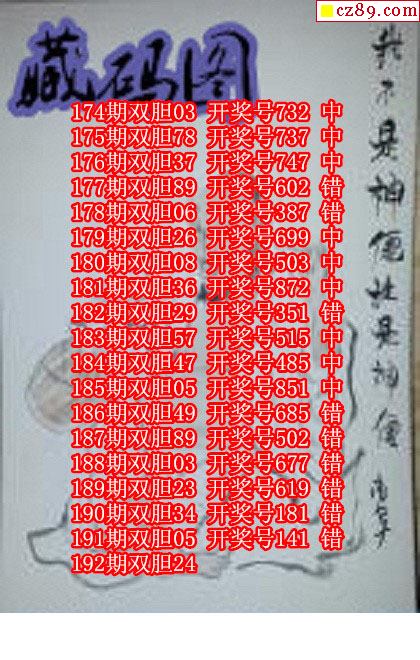 cz89.com
藏码图
174期双胆03 开奖号732 中
175期双胆78 开奖号737 中
176期双胆37 开奖号747 中
177期双胆89 开奖号602 错
178期双胆06 开奖号387 错
179期双胆26 开奖号699 中
180期双胆08 开奖号503 中
181期双胆36 开奖号872 中
182期双胆29 开奖号351 错
183期双胆57 开奖号515 中
184期双胆47 开奖号485 中
185期双胆05 开奖号851 中
186期双胆49 开奖号685 错
187期双胆89 开奖号502 错
188期双胆03 开奖号677 错
189期双胆23 开奖号619 错
190期双胆34 开奖号181 错
191期双胆05 开奖号141 错
192期双胆24
我不是神 是神